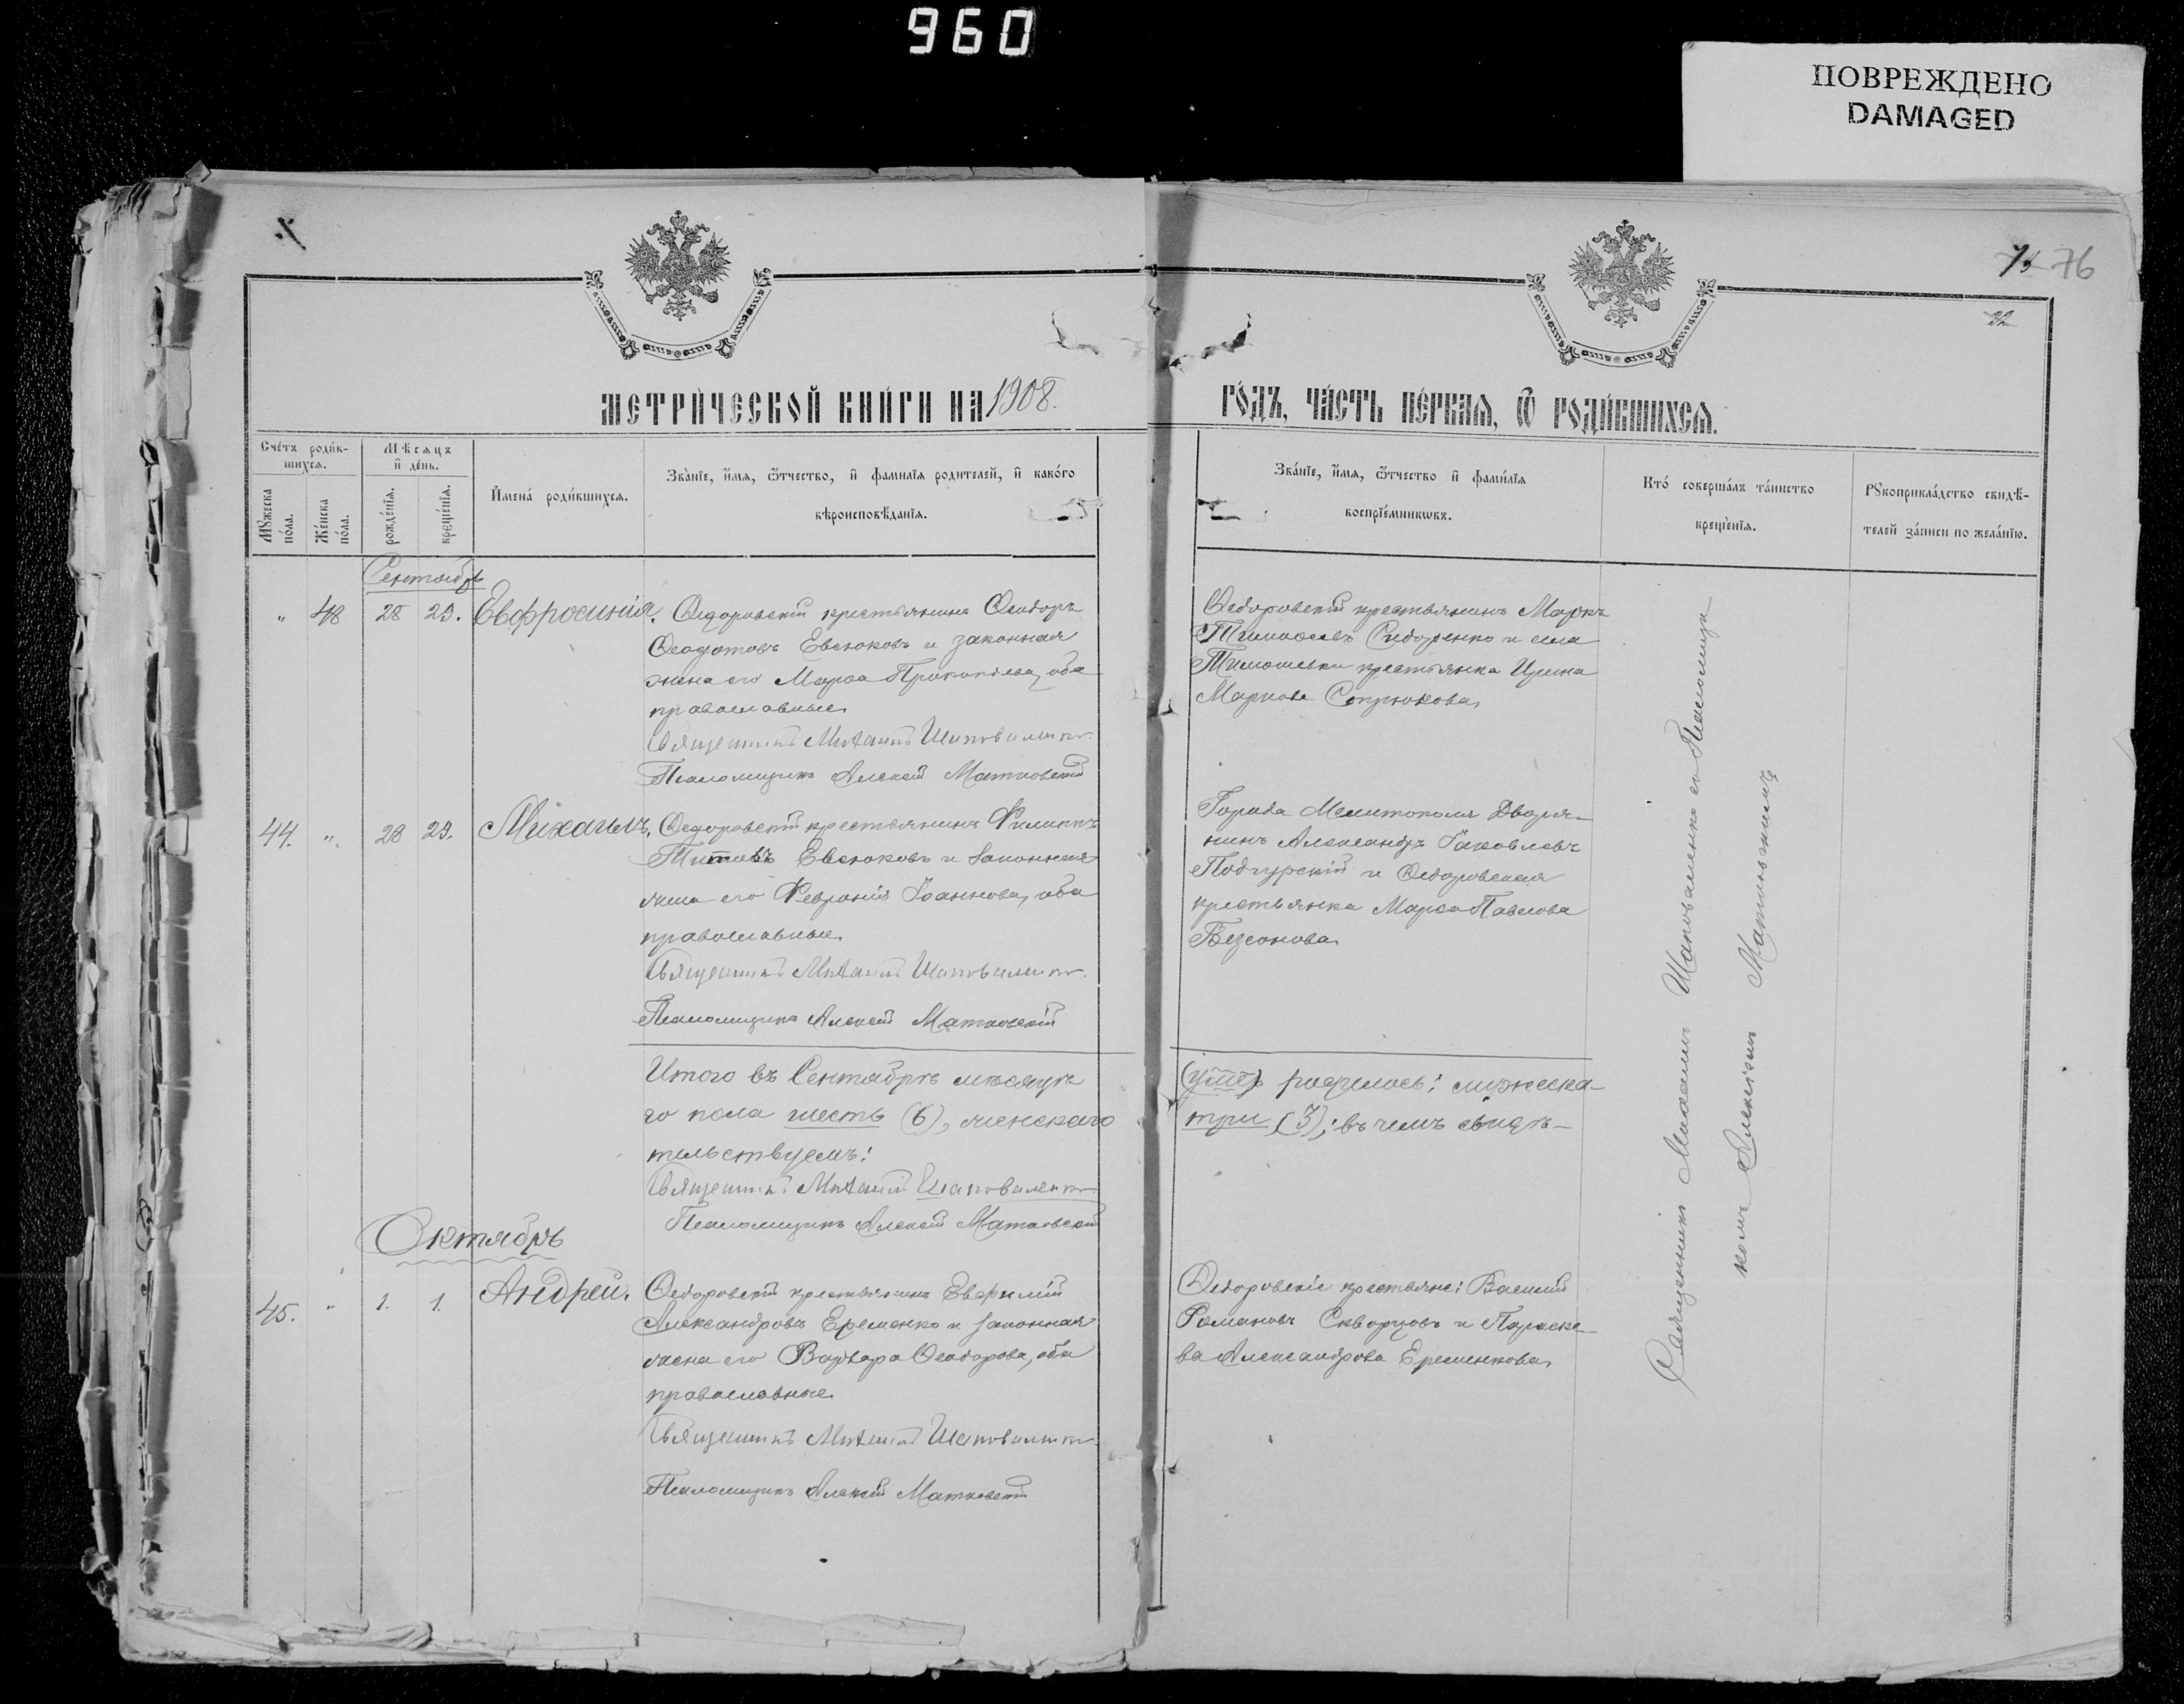 960
ПОВРЕЖДЕНО
DAMAGED
75 76
22
МЕТРИ́ЧЕСКОЙ КНИ́ГИ НА 1908.
ГО́ДЪ, ЧА́СТЬ ПЕ́РВАЯ, Ѿ РОДИ́ВШИХСЯ.
Сче́тъ роди́вшихся.
Му́жеска по́ла.
Же́нска по́ла.
Мѣ́сяцъ и де́нь.
рожде́нія.
креще́нія.
Имена́ роди́вшихся.
Зва́ніе, и́мя, ѻ́тчество, и фами́лія родителей, и како́го
вѣроисповѣ́данія.
Зва́ніе, и́мя, ѻ́тчество и фами́лія
воспріе́мниковъ.
Кто́ соверша́лъ та́инство
креще́нія.
Рукоприкла́дство свидѣ́-
телей за́писи по жела́нію.
Сентябрь
" 48 28 29. Евфросинія.
Ѳедоровскій крестьянинъ Ѳеодоръ
Ѳеодотовъ Евсюковъ и законная
жена его Марѳа Прокопіева, оба
православные.
Священникъ Михаилъ Шаповаленко
Псаломщикъ Алексій Матковскій
Ѳедоровскій крестьянинъ Маркъ
Тимоѳеевъ Сидоренко и села
Тимошевки крестьянка Ирина
Маркова Спрюкова.
44. " 28 29. Михаилъ.
Ѳедоровскій крестьянинъ Филиппъ
Титовъ Евсюковъ и законная
жена его Февронія Іоаннова, оба
православные.
Священникъ Михаилъ Шаповаленко
Псаломщикъ Алексій Матковскій
Города Мелитополя Дворя-
нинъ Александръ Іаковлевъ
Подгурскій и Ѳедоровская
крестьянка Марѳа Павлова
Безсонова.
Итого въ Сентябрѣ мѣсяцѣ
родилось: мужеска-
го пола шесть (6), женскаго
три (3); въ чемъ свидѣ-
тельствуемъ:
Священникъ Михаилъ Шаповаленко
Псаломщикъ Алексій Матковскій
Октябрь
45. " 1. 1. Андрей.
Ѳедоровскій крестьянинъ Евфимій
Александровъ Еременко и законная
жена его Варвара Ѳеодорова, оба
православные.
Священникъ Михаилъ Шаповаленко
Псаломщикъ Алексій Матковскій
Ѳедоровскіе крестьяне: Василій
Романовъ Скворцовъ и Параске-
ва Александрова Еременкова.
Священникъ Михаилъ Шаповаленко съ Псаломщи-
комъ Алексіемъ Матковскимъ